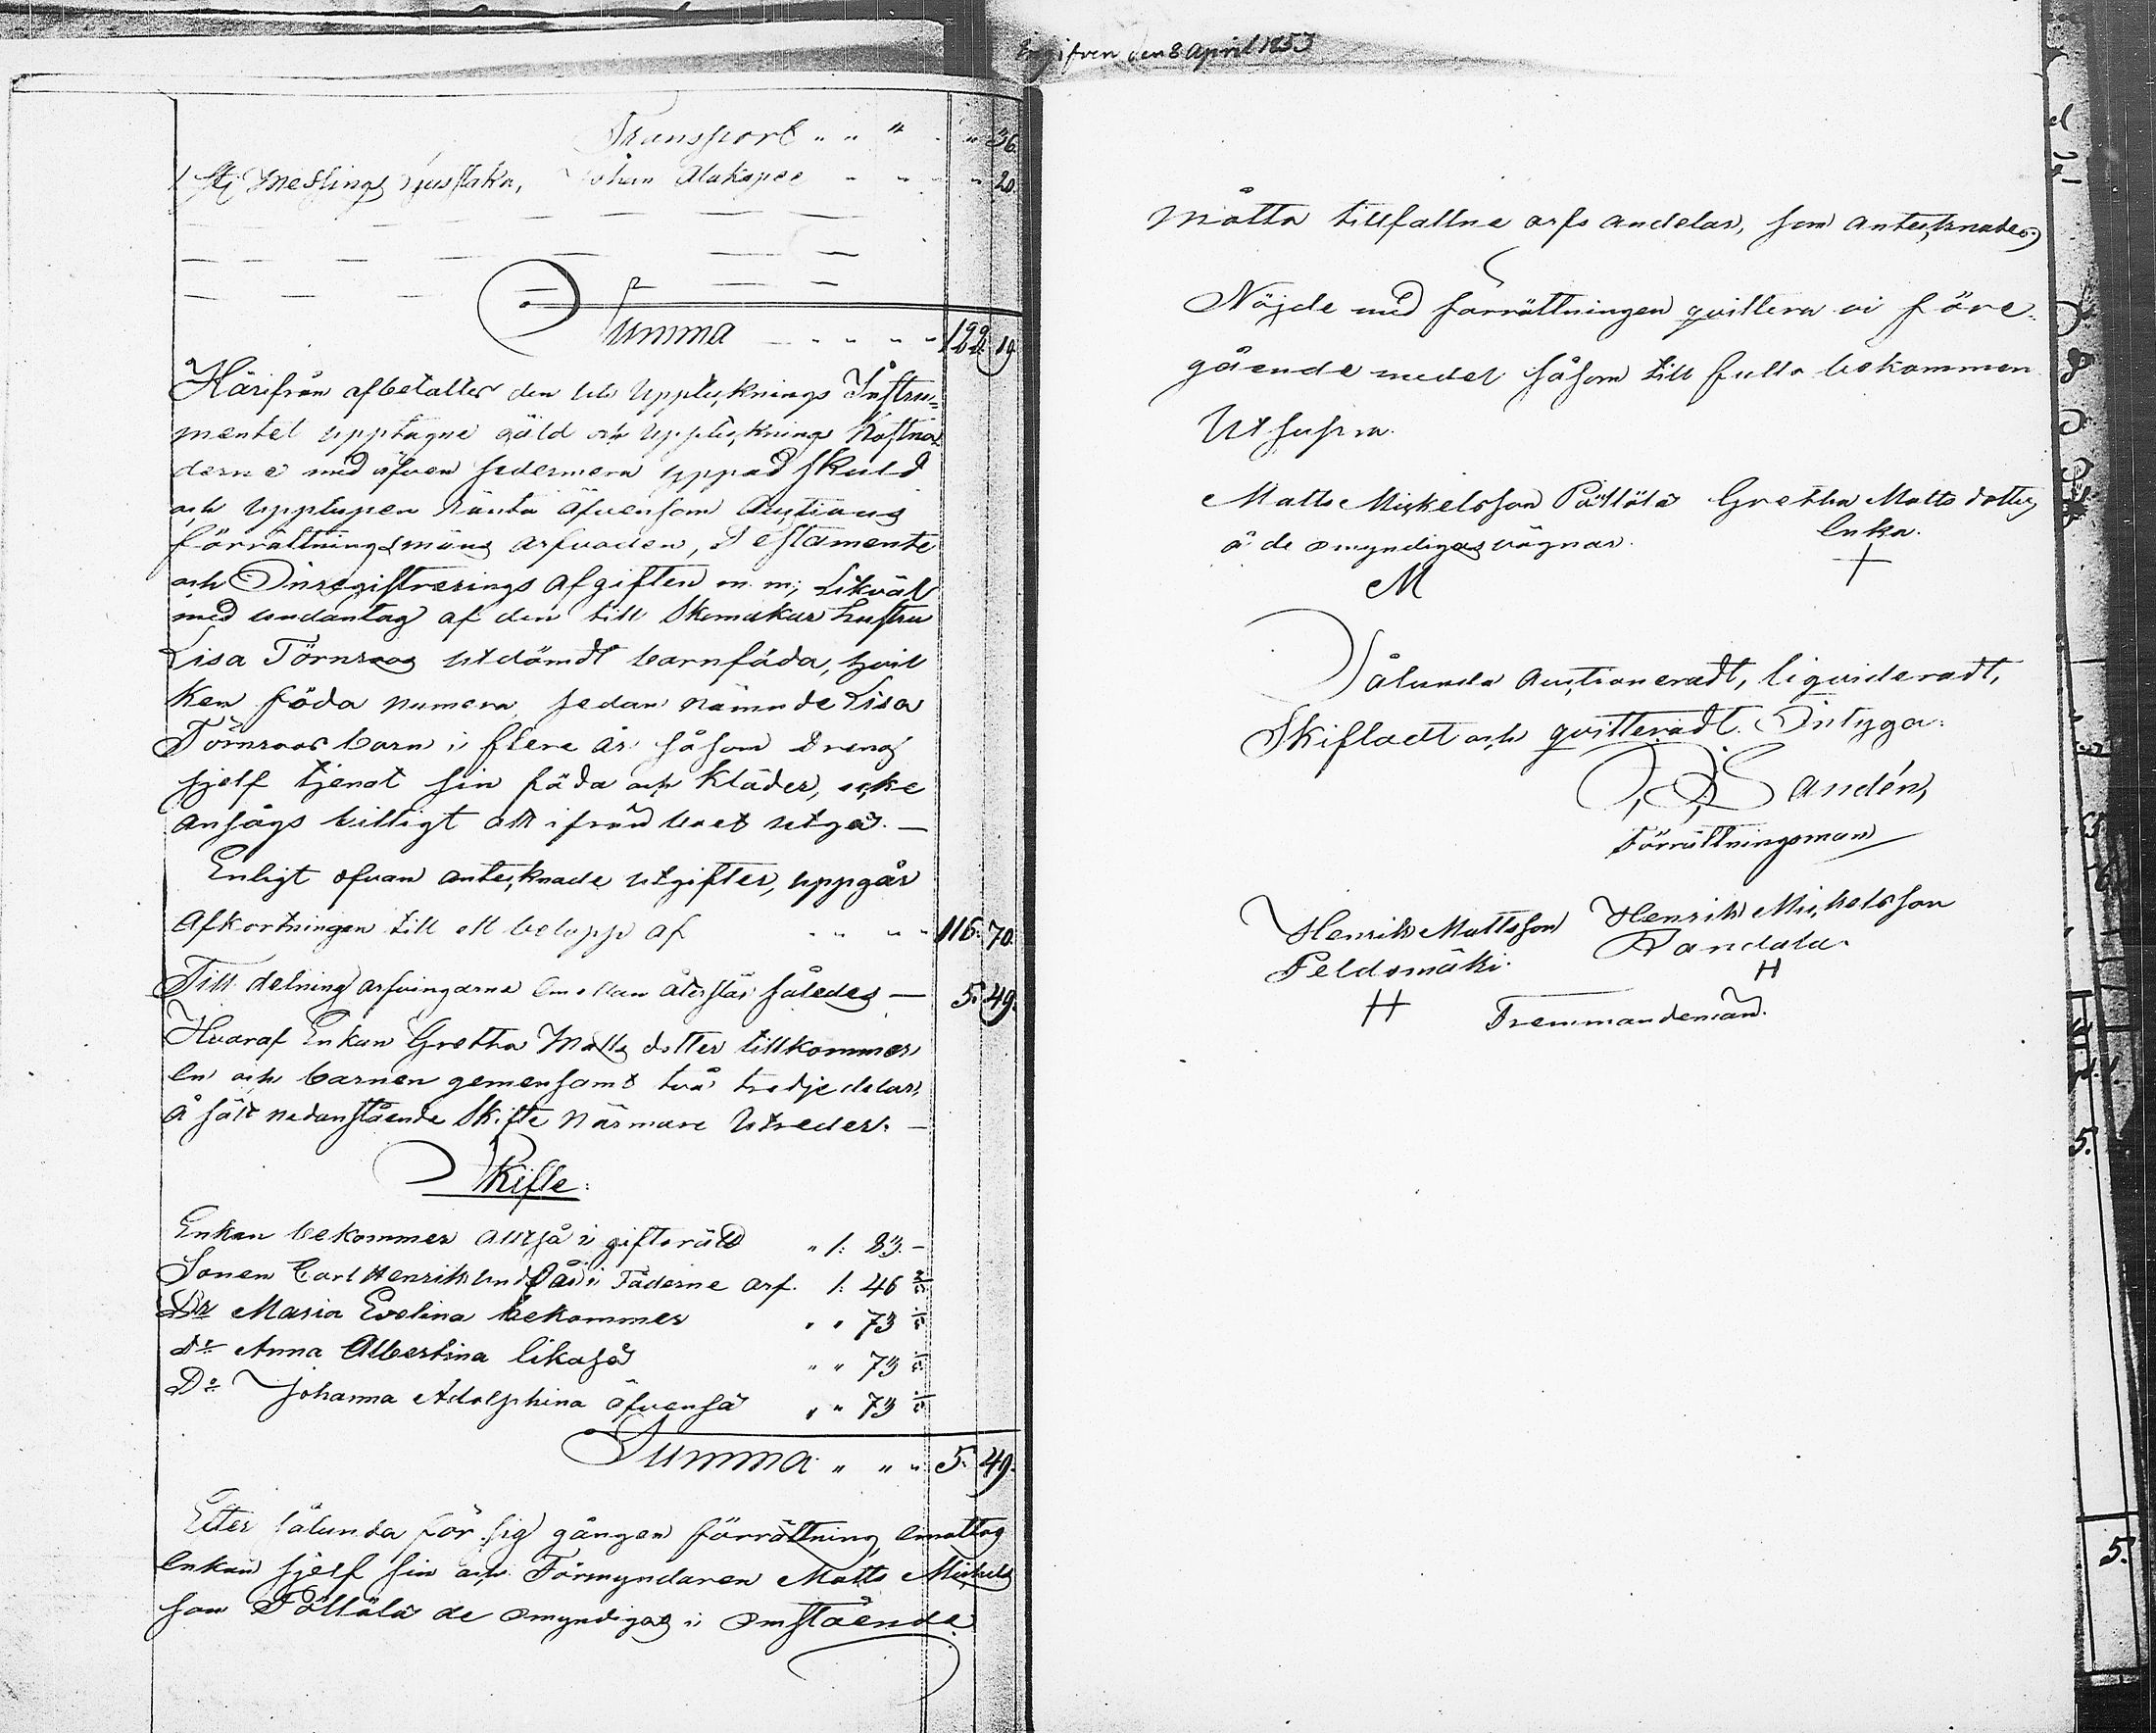 Engifven den 8 April 1853
Transport " " " " " 36.
1 st Messings Ljusstaka, Johan Alakapee " " " 20.
Summa - " " " 122 19
Härifrån afbetaltes den uti Uppteknings Instru-
mentet upptagne gäld och Uppteknings Kostna
derne med äfven sedermera yppad skuld
och Upplupen Ränta äfvensom Auctions
förrättningsmäns arfvoden, Testamente
och Inregistrerings afgiften m. m; Likväl
med undantag af den till Skomakar hustru
Lisa Törnroos utdömdt barnföda, hvil
ken föda numera, sedan nämnde Lisa
Törnroos barn i flere år såsom dreng
sjelf tjenat sin föda och kläder, icke
ansågs billigt att ifrån boet utgå. —
Enligt ofvan anteknade utgifter, uppgår
Afkortningen till ett belopp af " " " " 116. 70.
Till delning arfvingarne emellan återstår således — 5. 49.
Hvaraf Enkan Gretha Matts dotter tillkommer
en och barnen gemensamt två tredje delar,
å sätt nedanstående Skifte närmare Utredes. —
Skifte:
Enkan bekommer altså i giftorätt " 1: 83. -
Sonen Carl Henrik undfår i Fäderne arf. 1: 46 2/5
Dr Maria Evelina bekommer " " 73 1/5
Dr Anna Albertina likaså " " 73 1/5
Do Johanna Adolphina äfvenså " " 73 1/5
Summa " " " 5. 49.
Efter sålunda för sig gången förrättning, emottog
enkan sjelf sin och Förmyndaren Matts Mickels
son Pöllälä de omyndigas i omstående
måtto tillfallne arfs andelar, som anteknades;
Nöjde med förrättningen qvittera vi före-
gående medel såsom till fullo bekommen
Ut supra.
Matts Mickelsson Pöllölä Gretha Matts dotter
å de omyndigas vägnar. enka.
M +
Sålunda Auctioneradt, liquideradt,
Skiftadt och qvitteradt. Intyga:
Sandén,
Förrättningsman
Henrik Mattsson Henrik Mickelsson
Peldomäki. Randala.
H H
Fremmandemän.